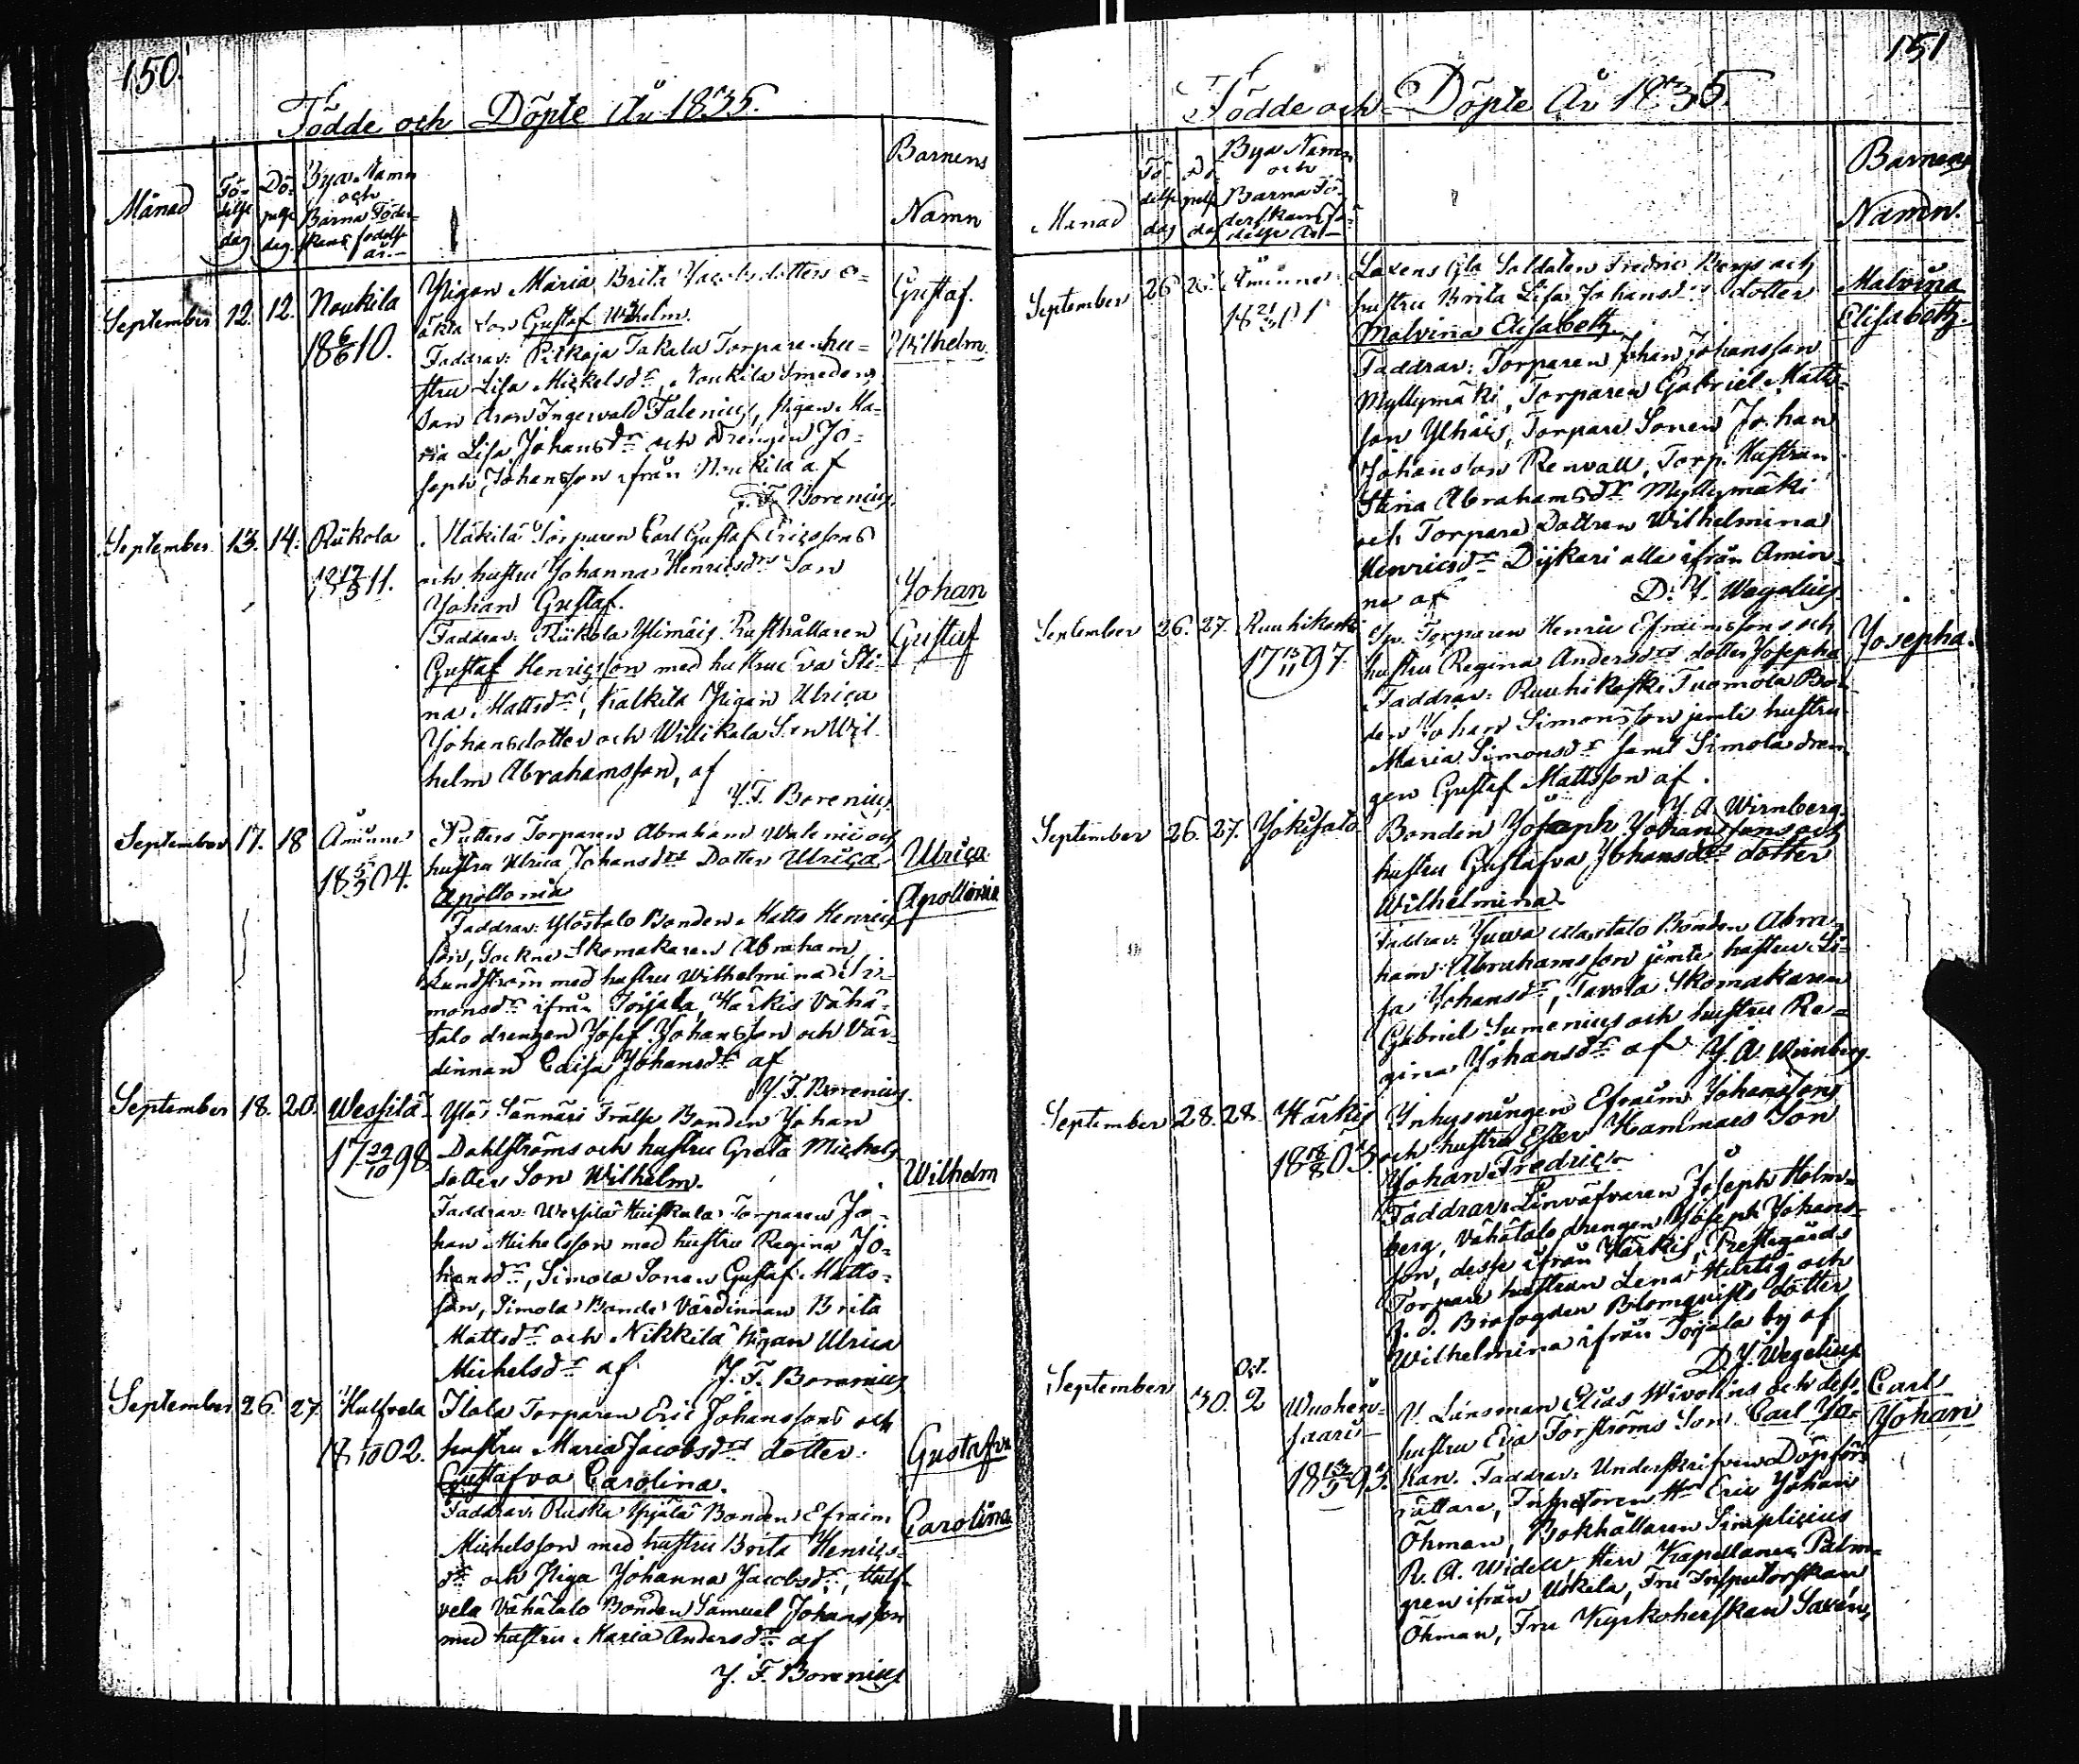 150
Födde och Döpte År 1835.
Månad
Fö-
delse
dag
Dö-
pelse
dag.
Byar Namn
och
Barna Föder-
skans födelse
år.
Barnens
Namn
September 12. 12. Noukila
18 6/6 10.
Pigan Maria Brita Jacobsdotters o-
äkta Son Gustaf Wilhelm.
Gustaf.
Wilhelm.
Faddrar: Takala Torpare hu-
stru Lisa Mickelsdr, Noukila Smedens
Son Aron Ingervald Falenius, Pigan Ma-
ria Lisa Johansdr och drengen Jo-
seph Johansson ifrån Noukila af
J. F. Borenius.
September 13. 14. Riikola
11.
Torparen Carl Gustaf Ericssons
och hustru Johanna Henricsdrs Son
Johan Gustaf.
Johan
Gustaf
Faddrar: Riikola Ylimäis Rusthållaren
Gustaf Henricsson med hustru Eva Sti-
na Mattsdr, Kalkila Pigan Ulrica
Johansdotter och Willikala Son Wil-
helm Abrahamsson, af
J. F. Borenius
September 17. 18 Åminne
04.
Putters Torparen Abraham och
hustru Ulrica Johansdrs Dotter Ulrica
Apollonia
Ulrica
Apollonia
Faddrar: Ylöstalo Bonden Matts Henrics
son, Sockne Skomakaren Abraham
Lundström med hustru Wilhelmina Si-
monsdr ifrån Torjala, Härkis Vähä-
talo drengen Josef Johansson och Vär-
dinnan Caisa Johansdr af
J. F. Borenius.
September 18. 20. Wessilä
17 22/10 98
Ylös Sännäri Frälse Bonden Johan
Dahlströms och hustru Greta Michels
dotters Son Wilhelm.
Wilhelm
Faddrar: Wessilä Huiskala Torparen Jo-
han Michelsson med hustru Regina Jo-
hansdr, Simola Sonen Gustaf Matts-
son, Simola Bonde Värdinnan Brita
Mattsdr och Nikkilä Pigan Ulrica
Michelsdr af
J. F. Borenius
September 26. 27. Hulfvela
02.
Ilola Torparen Eric Johanssons och
hustru Maria Jacobsdrs dotter
Gustafva Carolina.
Gustafva
Carolina
Faddrar: Ruska Ypjälä Bonden Efraim
Michelsson med hustru Brita Henrics-
dr och Piga Johanna Jacobsdr, Hulf-
vela Vähätalo Bonden Samuel Johansson
med hustru Maria Andersdr af
J. F. Borenius
151
Födde och Döpte År 1835.
Månad
Fö-
delse
dag
Dö-
pelse
dag
Byar Namn
och
Barna Fö-
derskans fö-
delse år
Barnens
Namn.
September 26 26 Åminne
18 21/3 01
Soldaten Fredric Bergs och
hustru Brita Lisa Johansdrs dotter
Malvina Elisabeth.
Malvina
Elisabeth.
Faddrar: Torparen Johan Johansson
Myllymäki, Torparen Gabriel Matts-
son Ylhäis, Torpare Sonen Johan
Johansson Renvall, Torp. Hustrun
Stina Abrahamsdr Myllymäki
och Torpare Dottren Wilhelmina
Henricsdr Dijkari alla ifrån Åmin-
ne af
D. J. Wegelius.
September 26. 27. Ruuhikoski
17 15/11 97.
Torparen Henric Efraimssons och
hustru Regina Andersdrs dotter Josepha
Josepha.
Faddrar: Ruuhikoski Tuomola Bon-
den Johan Simonsson jemte hustru
Maria Simonsdr samt Simola dren-
gen Gustaf Mattsson af.
J. A. Wirnberg.
September 26. 27. Jokisalo
Bonden Joseph Johanssons och
hustru Gustafva Johansdrs dotter
Wilhelmina.
Faddrar: Juwa Alastalo Bonden Abra-
ham Abrahamsson jemte hustru Li-
sa Johansdr, Tavola Skomakaren
Gabriel Sumenius och hustru Re-
gina Johansdr af J. A. Wirnberg.
September 28. 28. Härkis
03.
Inhysningen Efraim Johanssons
och hustru Ester Hammars Son
Johan Fredric
Faddrar: Linväfvaren Joseph Holm-
berg, Vähätalo drengen Joseph Johans-
son, desse ifrån Härkis, Prestegårds
Torpare hustrun Lena Hertig och
f. d. Brofogden Blomquists dotter
Wilhelmina ifrån Torjala by af
D. J. Wegelius.
September 30. Oct. 2 Wuohen-
saari
V. Länsman Elias Wivolins och dess
hustru Eva Forströms Son Carl Jo-
han. Faddrar: Underskrifven Döpför-
Carl
Johan
rättare, Inspectoren Hr Eric Johan
Öhman, Bokhållaren Simplicius
R. A. Widell, Herr Kapellanen Palm-
gren ifrån Uskela, Fru Inspectorskan
Öhman, Fru Kyrkoherskan Saxén,